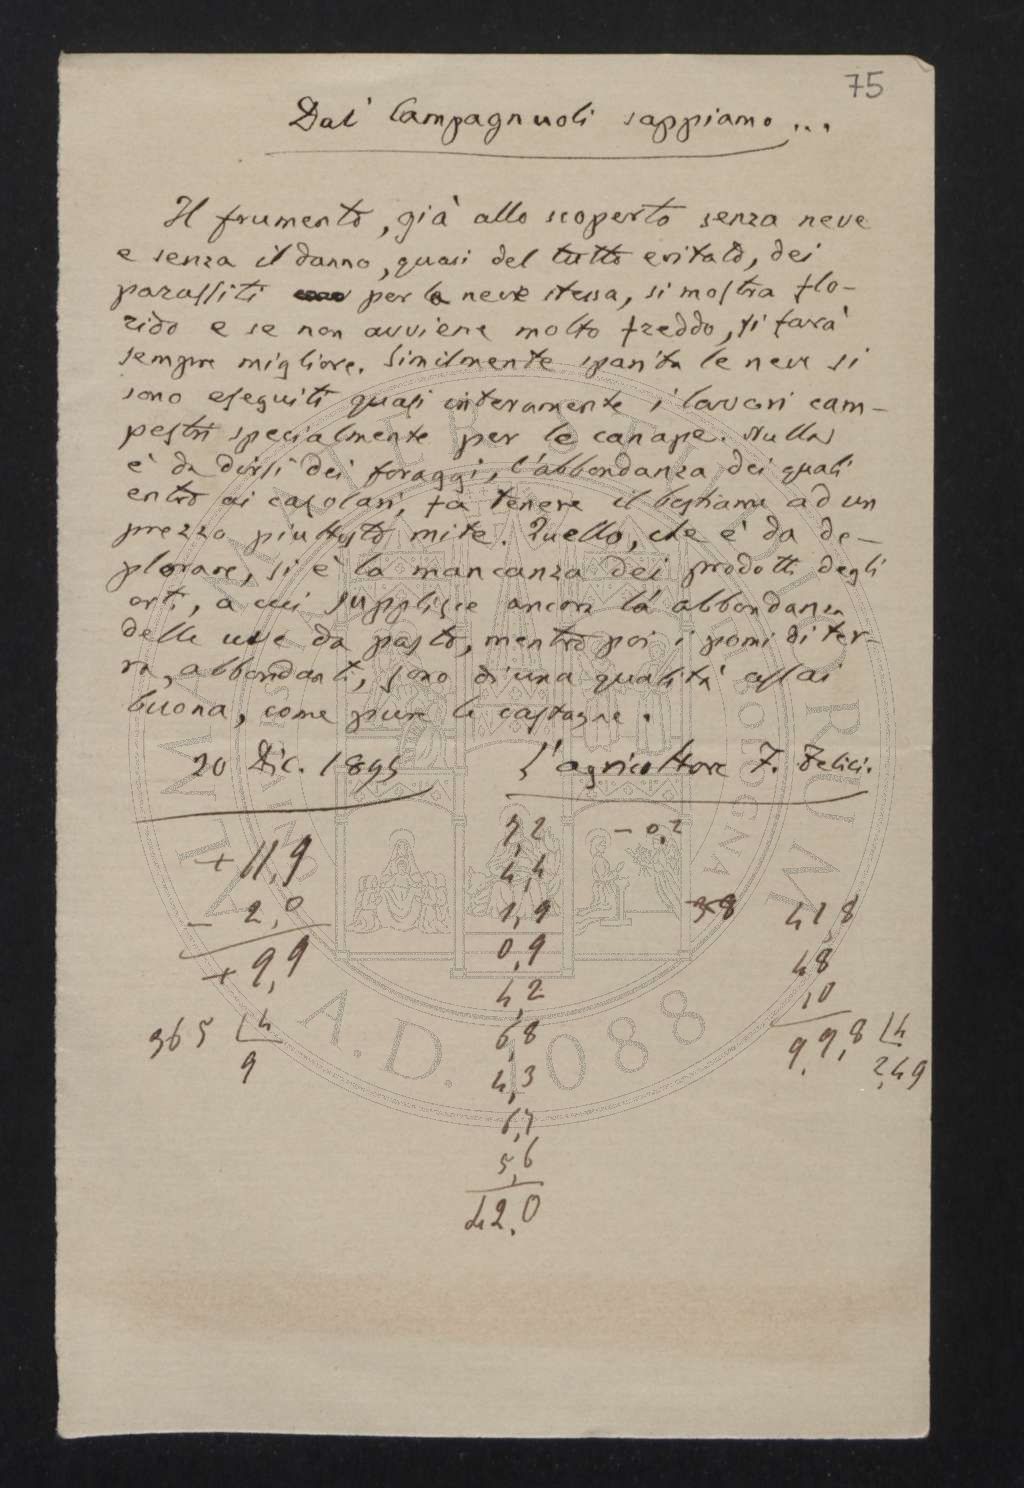 75
Dai Campagnuoli sappiamo...
Il frumento, già allo scoperto senza neve
e senza il danno, quasi del tutto evitato, dei
parassiti per la neve stessa, si mostra flo-
rido e se non avviene molto freddo, si farà
sempre migliore. Similmente sparita la neve si
sono eseguiti quasi interamente i lavori cam-
pestri specialmente per le canape. Nulla
è da dirsi dei foraggi, l'abbondanza dei quali
entro ai casolari, fa tenere il bestiame ad un
prezzo piuttosto mite. Quello, che è da de-
plorare, si è la mancanza dei prodotti degli
orti, a cui supplisce ancora la abbondanza
delle uve da pasto, mentre poi i pomi di ter-
ra, abbondanti, sono di una qualità assai
buona, come pure le castagne.
20 Dic. 1895 L'agricoltore F. Felici.
+ 11,9
- 2,0
+ 9,9
365 4
9
7,2 - 0,2
4,4
1,9 38
0,9
4,2
6,8
4,3
6,7
5,6
42,0
4 1 8
48
10
9,9,8 4
2,49
ALMA MATER STUDIORUM
A.D. 1088